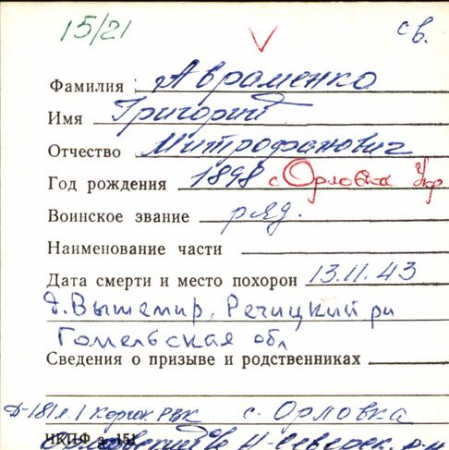 15/21 св.
Фамилия Авраменко
Имя Григорий
Отчество Митрофанович
Год рождения 1898 с Орловка Укр
Воинское звание ряд.
Наименование части
Дата смерти и место похорон 13.11.43
д. Вышемир, Речицкий рн
Гомельская обл
Сведения о призыве и родственниках
РВК с. Орловка